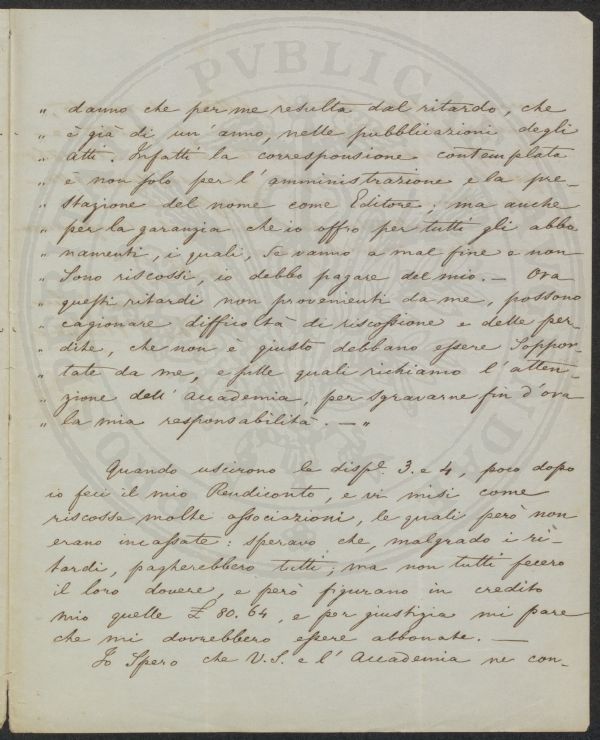 „ danno che per me resulta dal ritardo, che
„ è già di un'anno, nelle pubblicazioni degli
„ Atti. Infatti la corresponsione contemplata
„ è non solo per l'amministrazione e la pre-
„ stazione del nome come Editore; ma anche
„ per la garanzia che io offro per tutti gli abbo
„ namenti, i quali, se vanno a mal fine e non
„ sono riscossi, io debbo pagare del mio. — Ora
„ questi ritardi non provenienti da me, possono
„ cagionare difficoltà di riscossione e delle per-
„ dite, che non è giusto debbano essere soppor-
„ tate da me, e sulle quali richiamo l'atten-
„ zione dell'Accademia, per sgravarne fin d'ora
„ la mia responsabilità. — „
Quando uscirono le disp.e 3. e 4, poco dopo
io feci il mio Rendiconto, e vi misi come
riscosse molte associazioni, le quali però non
erano incassate: speravo che, malgrado i ri-
tardi, pagherebbero tutti; ma non tutti fecero
il loro dovere, e però figurano in credito
mio quelle £ 80.64, e per giustizia mi pare
che mi dovrebbero essere abbonate. —
Io spero che V.S. e l'Accademia ne con-
PVBLICA